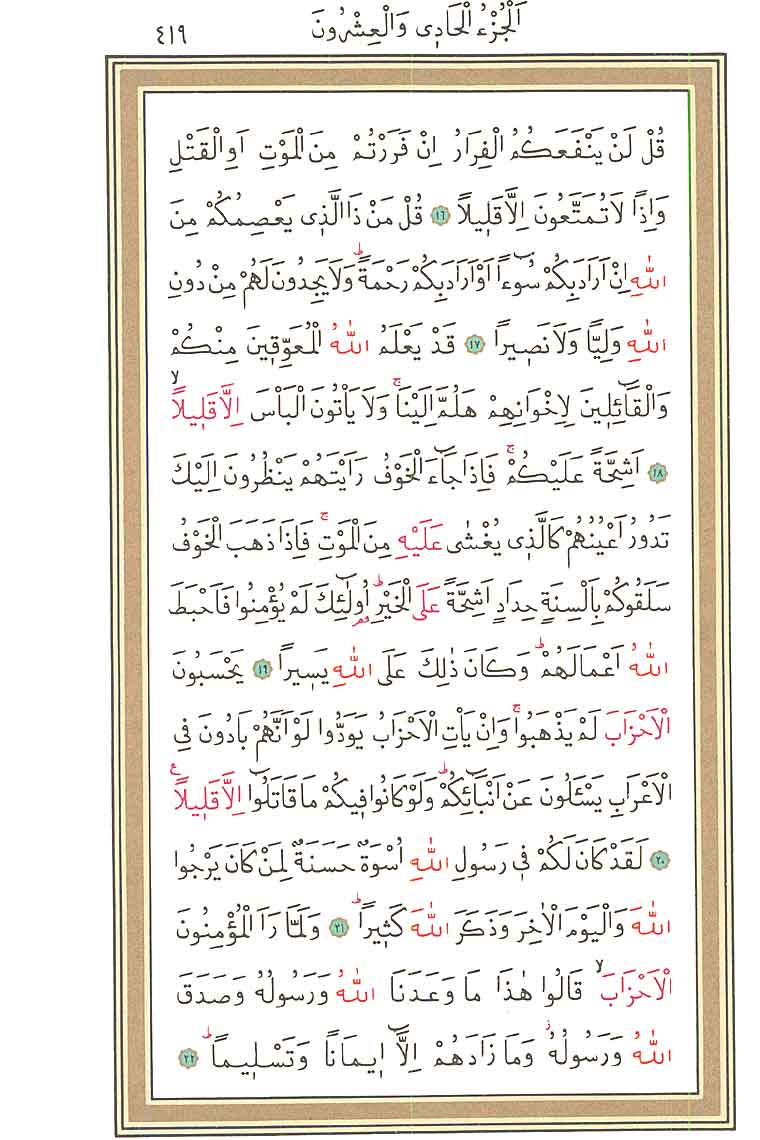 اَلْجُزْءُ الْحَادِى وَالْعِشْرُونَ ٤١٩
قُلْ لَنْ يَنْفَعَكُمُ الْفِرَارُ اِنْ فَرَرْتُمْ مِنَ الْمَوْتِ اَوِ الْقَتْلِ
وَاِذًا لَا تُمَتَّعُونَ اِلَّا قَلِيلًا ﴿١٦﴾ قُلْ مَنْ ذَا الَّذِى يَعْصِمُكُمْ مِنَ
اللّٰهِ اِنْ اَرَادَ بِكُمْ سُٓوءًا اَوْ اَرَادَ بِكُمْ رَحْمَةًۜ وَلَا يَجِدُونَ لَهُمْ مِنْ دُونِ
اللّٰهِ وَلِيًّا وَلَا نَصِيرًا ﴿١٧﴾ قَدْ يَعْلَمُ اللّٰهُ الْمُعَوِّقِينَ مِنْكُمْ
وَالْقَٓائِلِينَ لِاِخْوَانِهِمْ هَلُمَّ اِلَيْنَاۚ وَلَا يَأْتُونَ الْبَأْسَ اِلَّا قَلِيلًاۙ
﴿١٨﴾ اَشِحَّةً عَلَيْكُمْۚ فَاِذَا جَٓاءَ الْخَوْفُ رَاَيْتَهُمْ يَنْظُرُونَ اِلَيْكَ
تَدُورُ اَعْيُنُهُمْ كَالَّذِى يُغْشٰى عَلَيْهِ مِنَ الْمَوْتِۚ فَاِذَا ذَهَبَ الْخَوْفُ
سَلَقُوكُمْ بِاَلْسِنَةٍ حِدَادٍ اَشِحَّةً عَلَى الْخَيْرِۜ اُو۬لٰٓئِكَ لَمْ يُؤْمِنُوا فَاَحْبَطَ
اللّٰهُ اَعْمَالَهُمْۜ وَكَانَ ذٰلِكَ عَلَى اللّٰهِ يَسِيرًا ﴿١٩﴾ يَحْسَبُونَ
الْاَحْزَابَ لَمْ يَذْهَبُواۚ وَاِنْ يَأْتِ الْاَحْزَابُ يَوَدُّوا لَوْ اَنَّهُمْ بَادُونَ فِى
الْاَعْرَابِ يَسْـَٔلُونَ عَنْ اَنْبَٓائِكُمْۜ وَلَوْ كَانُوا فِيكُمْ مَا قَاتَلُٓوا اِلَّا قَلِيلًا۟
﴿٢٠﴾ لَقَدْ كَانَ لَكُمْ فِى رَسُولِ اللّٰهِ اُسْوَةٌ حَسَنَةٌ لِمَنْ كَانَ يَرْجُوا
اللّٰهَ وَالْيَوْمَ الْاٰخِرَ وَذَكَرَ اللّٰهَ كَثِيرًاۜ ﴿٢١﴾ وَلَمَّا رَاَ الْمُؤْمِنُونَ
الْاَحْزَابَۙ قَالُوا هٰذَا مَا وَعَدَنَا اللّٰهُ وَرَسُولُهُ وَصَدَقَ
اللّٰهُ وَرَسُولُهُۘ وَمَا زَادَهُمْ اِلَّٓا اِيمَانًا وَتَسْلِيمًاۜ ﴿٢٢﴾